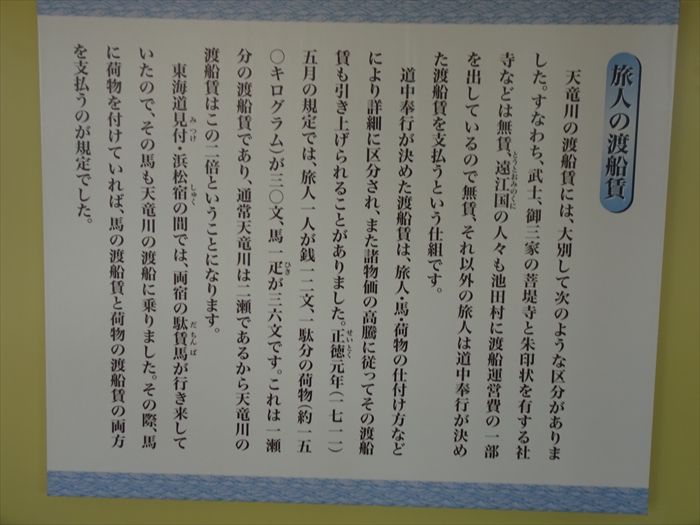 旅人の渡船賃
天竜川の渡船賃には、大別して次のような区分がありま
した。すなわち、武士、御三家の菩提寺と朱印状を有する社
寺などは無賃、遠江国の人々も池田村に渡船運営費の一部
を出しているので無賃、それ以外の旅人は道中奉行が決め
た渡船賃を支払うという仕組です。
道中奉行が決めた渡船賃は、旅人・馬・荷物の仕付け方など
により詳細に区分され、また諸物価の高騰に従ってその渡船
賃も引き上げられることがありました。正徳元年(一七一一)
五月の規定では、旅人一人が銭一二文、一駄分の荷物(約一五
〇キログラム)が三〇文、馬一疋が三六文です。これは一瀬
分の渡船賃であり、通常天竜川は二瀬であるから天竜川の
渡船賃はこの二倍ということになります。
東海道見付・浜松宿の間では、両宿の駄賃馬が行き来して
いたので、その馬も天竜川の渡船に乗りました。その際、馬
に荷物を付けていれば、馬の渡船賃と荷物の渡船賃の両方
を支払うのが規定でした。